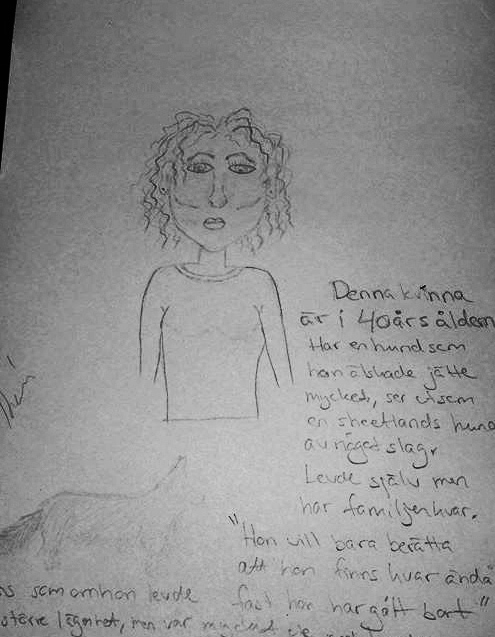 Denna kvinna
är i 40års åldern
Har en hund som
hon älskade jätte
mycket, ser ut som
en sheetlands hund
av något slag.
Levde själv men
har familjen kvar.
"Hon vill bara berätta
att hon finns kvar ändå
fast hon har gått bort"
som om hon levde
större lägenhet, men var